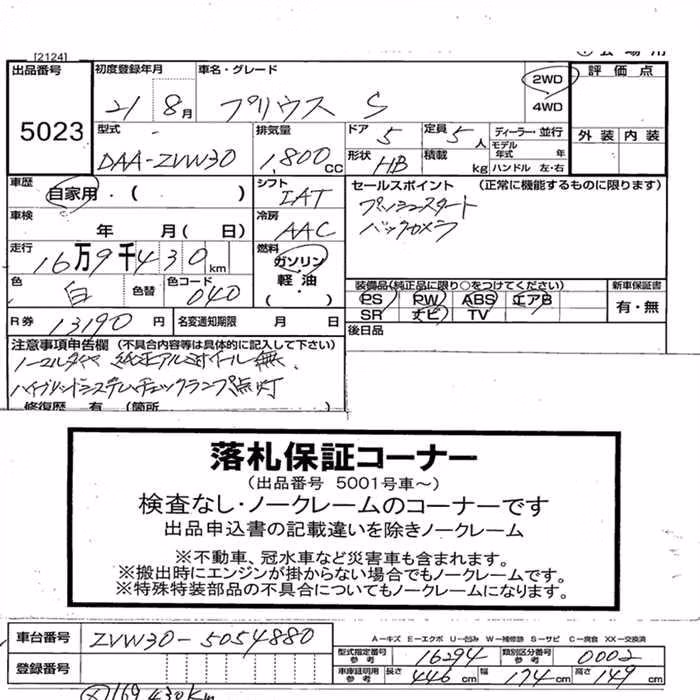 [2124]
出品番号 初度登録年月 車名・グレード 2WD 評価点
5023 21 8月 プリウス S 4WD
型式 排気量 ドア 5 定員 5人 ディーラー・並行 外装 内装
DAA-ZVW30 1,800cc 形状 HB 積載 kg モデル年式 年
ハンドル 左・右
車歴 自家用・( ) シフト IAT セールスポイント (正常に機能するものに限ります)
車検 年 月(日) 冷房 AAC プッシュスタート
バックカメラ
走行 16万9千430km 燃料 ガソリン・軽油・( )
色 白 色替 色コード 040 装備品(純正品に限り○をつけてください) 新車保証書
PS PW ABS エアB 有・無
SR ナビ TV
R券 13190円 名変通知期限 月 日 後日品
注意事項申告欄(不具合内容等は具体的に記入して下さい)
ノーマルタイヤ 純正アルミホイール無
ハイブリッドシステムチェックランプ点灯
修復歴 有(箇所
落札保証コーナー
(出品番号 5001号車~)
検査なし・ノークレームのコーナーです
出品申込書の記載違いを除きノークレーム
※不動車、冠水車など災害車も含まれます。
※搬出時にエンジンが掛からない場合でもノークレームです。
※特殊特装部品の不具合についてもノークレームになります。
車台番号 ZVW30-5054880 A-キズ E-エクボ U-凹み W-補修跡 S-サビ C-腐食 XX-交換済
型式指定番号参考 16294 類別区分番号参考 0002
登録番号 車庫証明用参考 長さ 446cm 幅 174cm 高さ 149cm
169,430Km